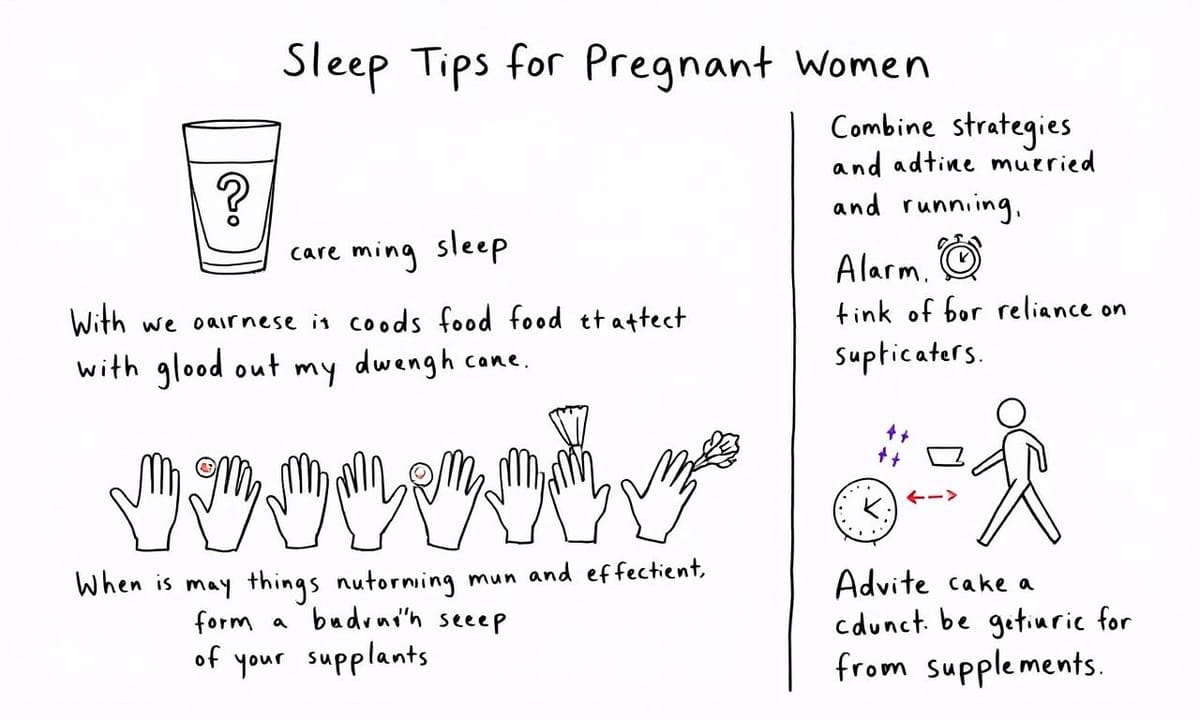 Sleep Tips for Pregnant Women
?
care ming sleep
With we oairnese is coods food food et attect
with glood out my dwengh cane.
When is may things nutorming mun and effectient,
form a badruni"h seeep
of your supplants
Combine strategies
and adtine mucried
and running,
Alarm.
tink of bor reliance on
supticaters.
Advite cake a
cdunct. be getiuric for
from supplements.